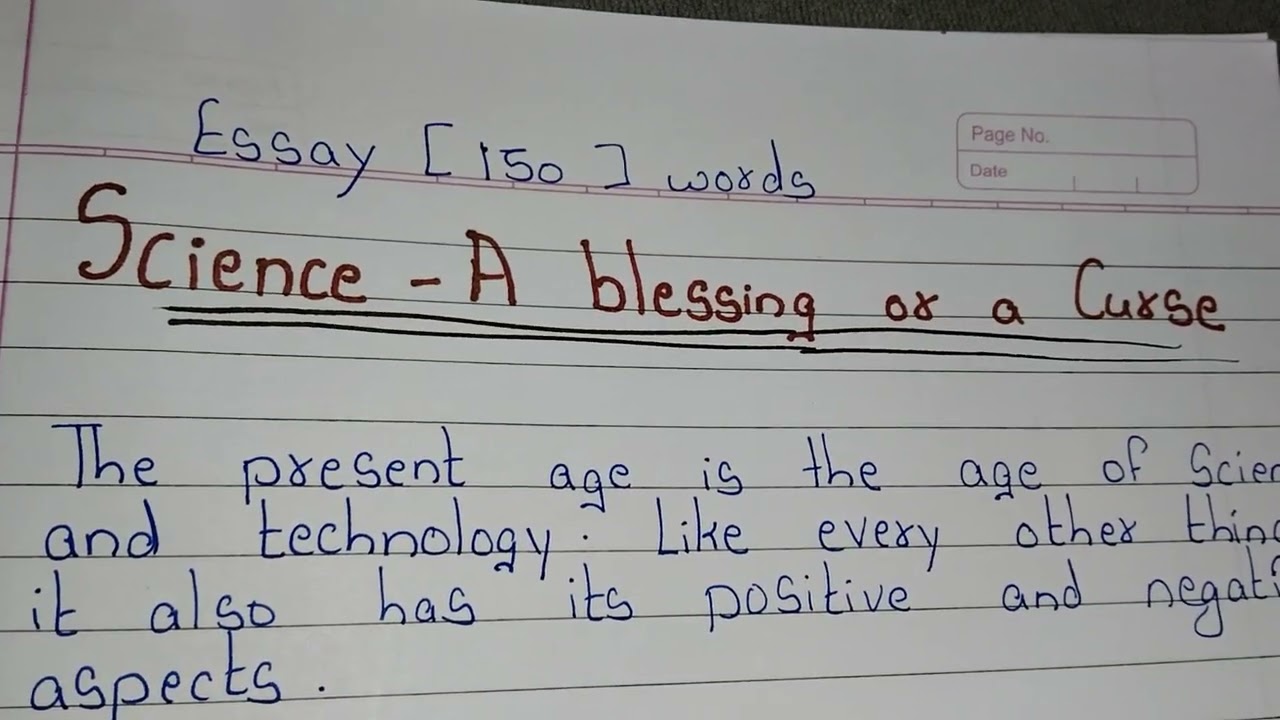 Essay [150] words
Page No.
Date
Science - A blessing or a Curse
The present age is the age of Scien
and technology. Like every other thing
it also has its positive and negati
aspects.